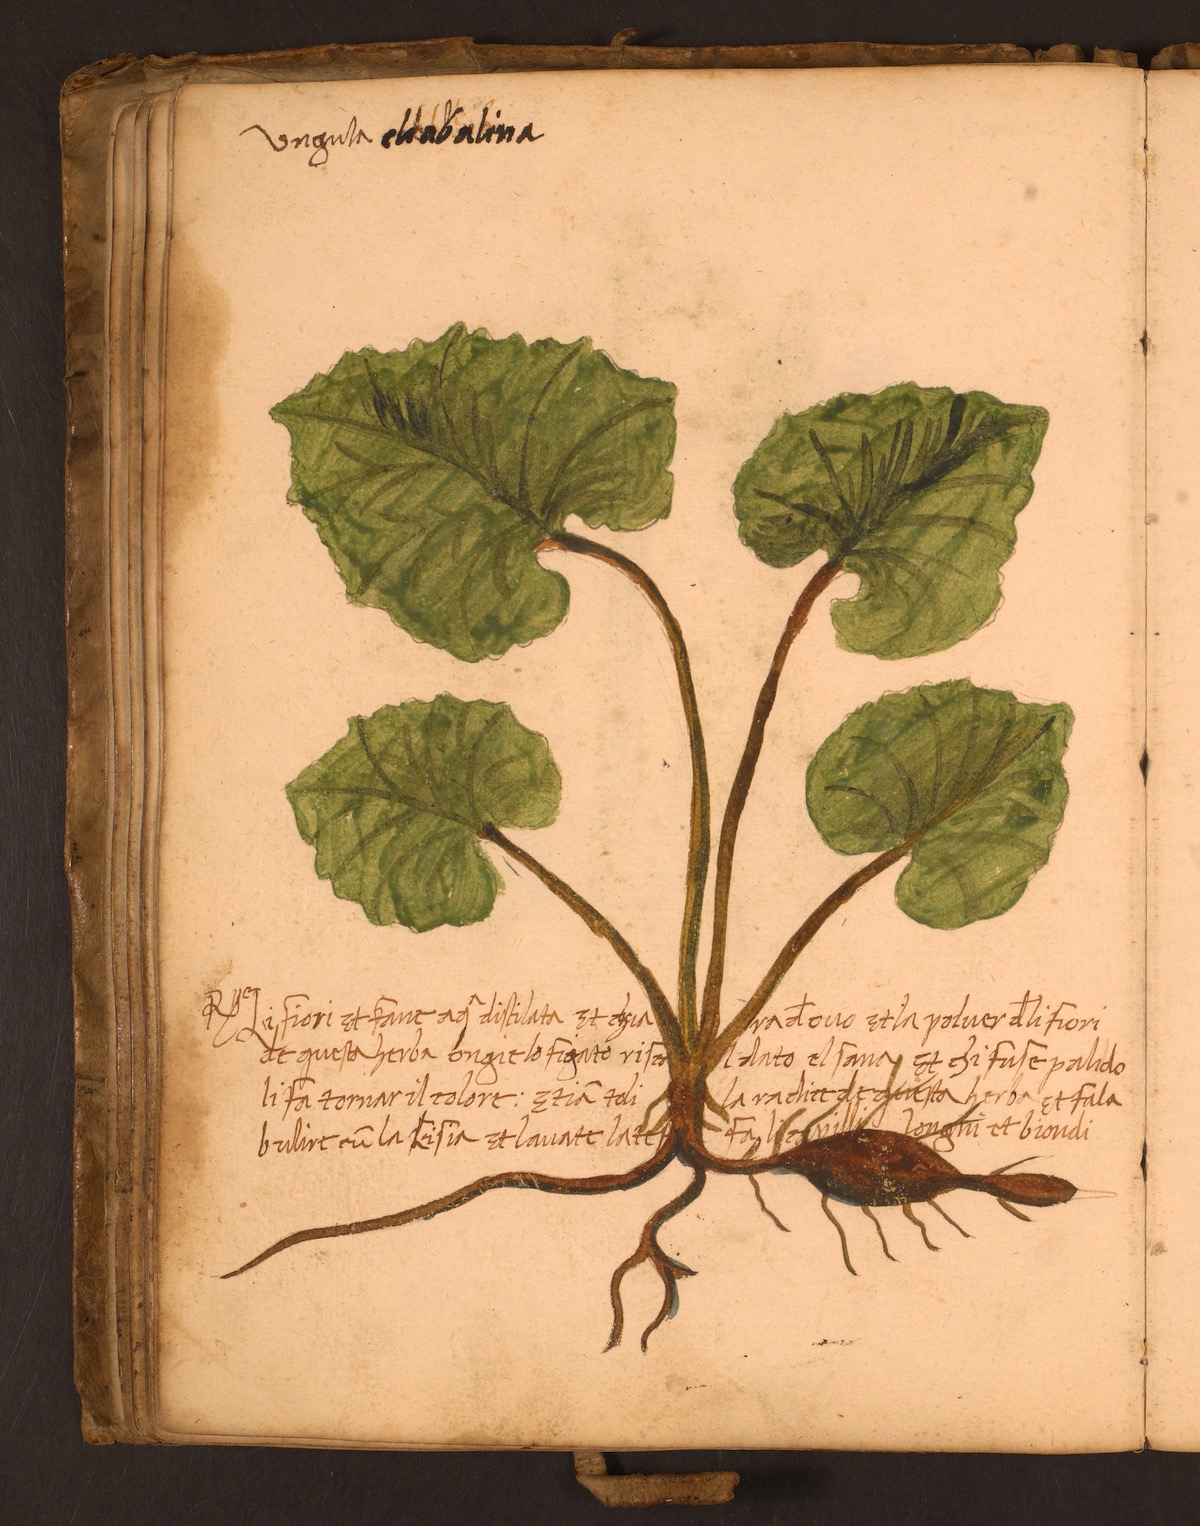 Vngula chabalina
Rx li fiori et fane aq̃ distilata et chia ra d ouo et la poluer d li fiori
de questa herba ongie lo figato risca l dato el sana et chi fuse palido
li fa tornar il colore: etiã toli la radice de questa herba et fala
bulire cũ la lisia et lauate la te fa li capilli longhi et biondi